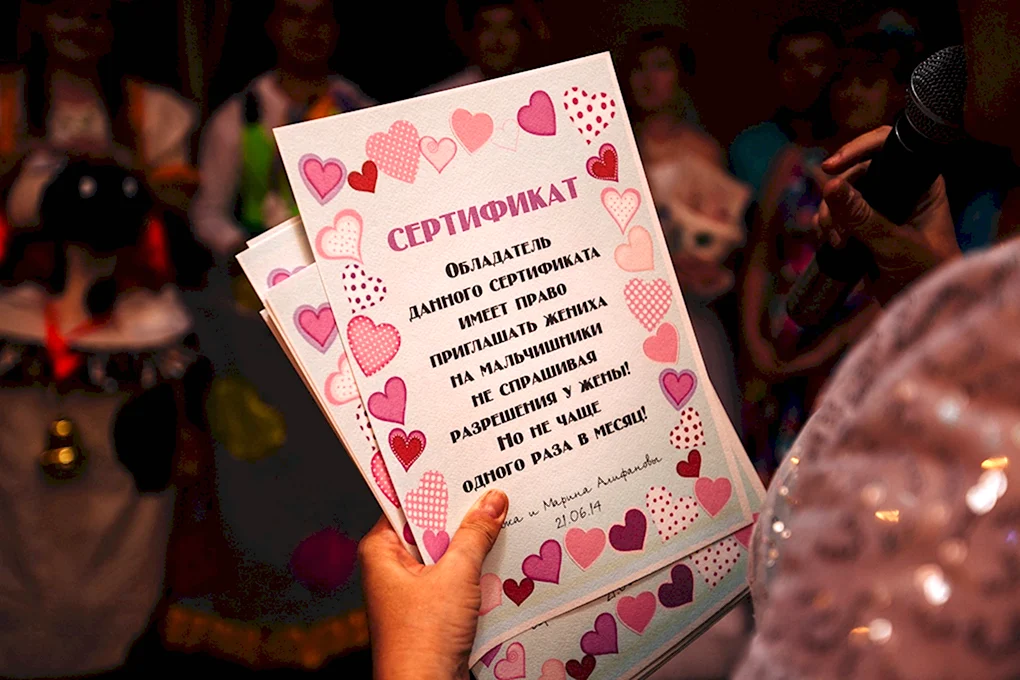 СЕРТИФИКАТ
ОБЛАДАТЕЛЬ
ДАННОГО СЕРТИФИКАТА
ИМЕЕТ ПРАВО
ПРИГЛАШАТЬ ЖЕНИХА
НА МАЛЬЧИШНИКИ
НЕ СПРАШИВАЯ
РАЗРЕШЕНИЯ У ЖЕНЫ!
НО НЕ ЧАЩЕ
ОДНОГО РАЗА В МЕСЯЦ!
и Марина Алифановы
21.06.14